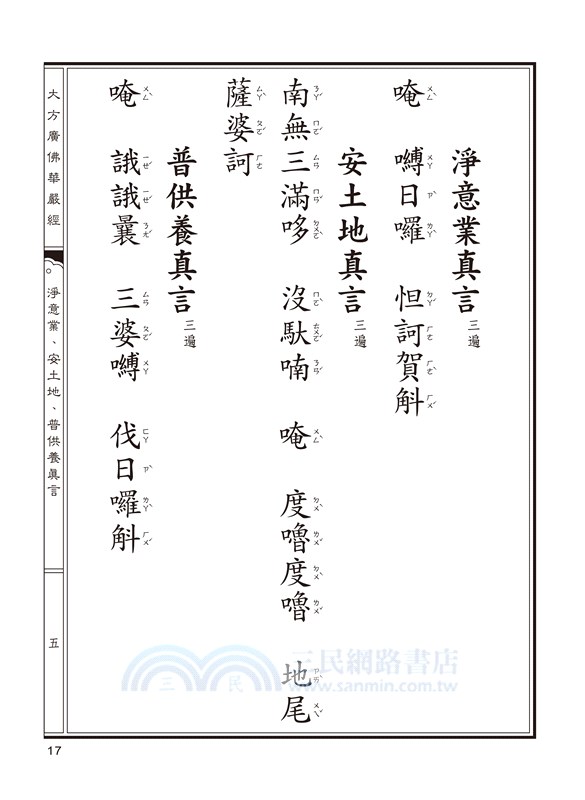 淨意業真言 三遍
唵 嚩日囉 怛訶賀斛
安土地真言 三遍
南無三滿哆 沒馱喃 唵 度嚕度嚕 地尾
薩婆訶
普供養真言 三遍
唵 誐誐曩 三婆嚩 伐日囉斛
大方廣佛華嚴經
淨意業、安土地、普供養眞言
五
17
三民網路書店
www.sanmin.com.tw
三 民